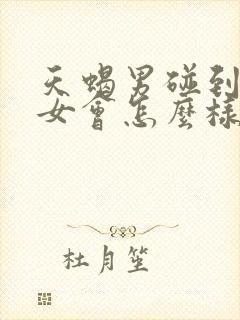 天蝎男碰到
女會怎麼樣
杜月笙